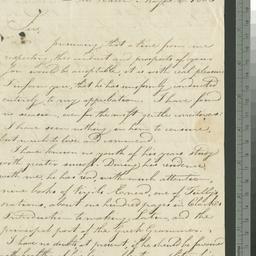 Sir,
presuming that a line from me
respecting the conduct and prospects of your
son would be acceptable, it is with real pleasure
I inform you, that he has uniformly conducted
entirely to my approbation. I have found
no reason, on for the most part
I have seen nothing in him to censure,
but much to love and commend.
I have known no youth of his years study
with greater success. During his residence
with me, he has read with much attention
nine books of Virgil's Eneid, one of Tully's
orations, about one hundred pages in Clarke's
Introduction to making Latin, and the
principal part of the Greek Grammar.
I have no doubt at present, if he should be favored